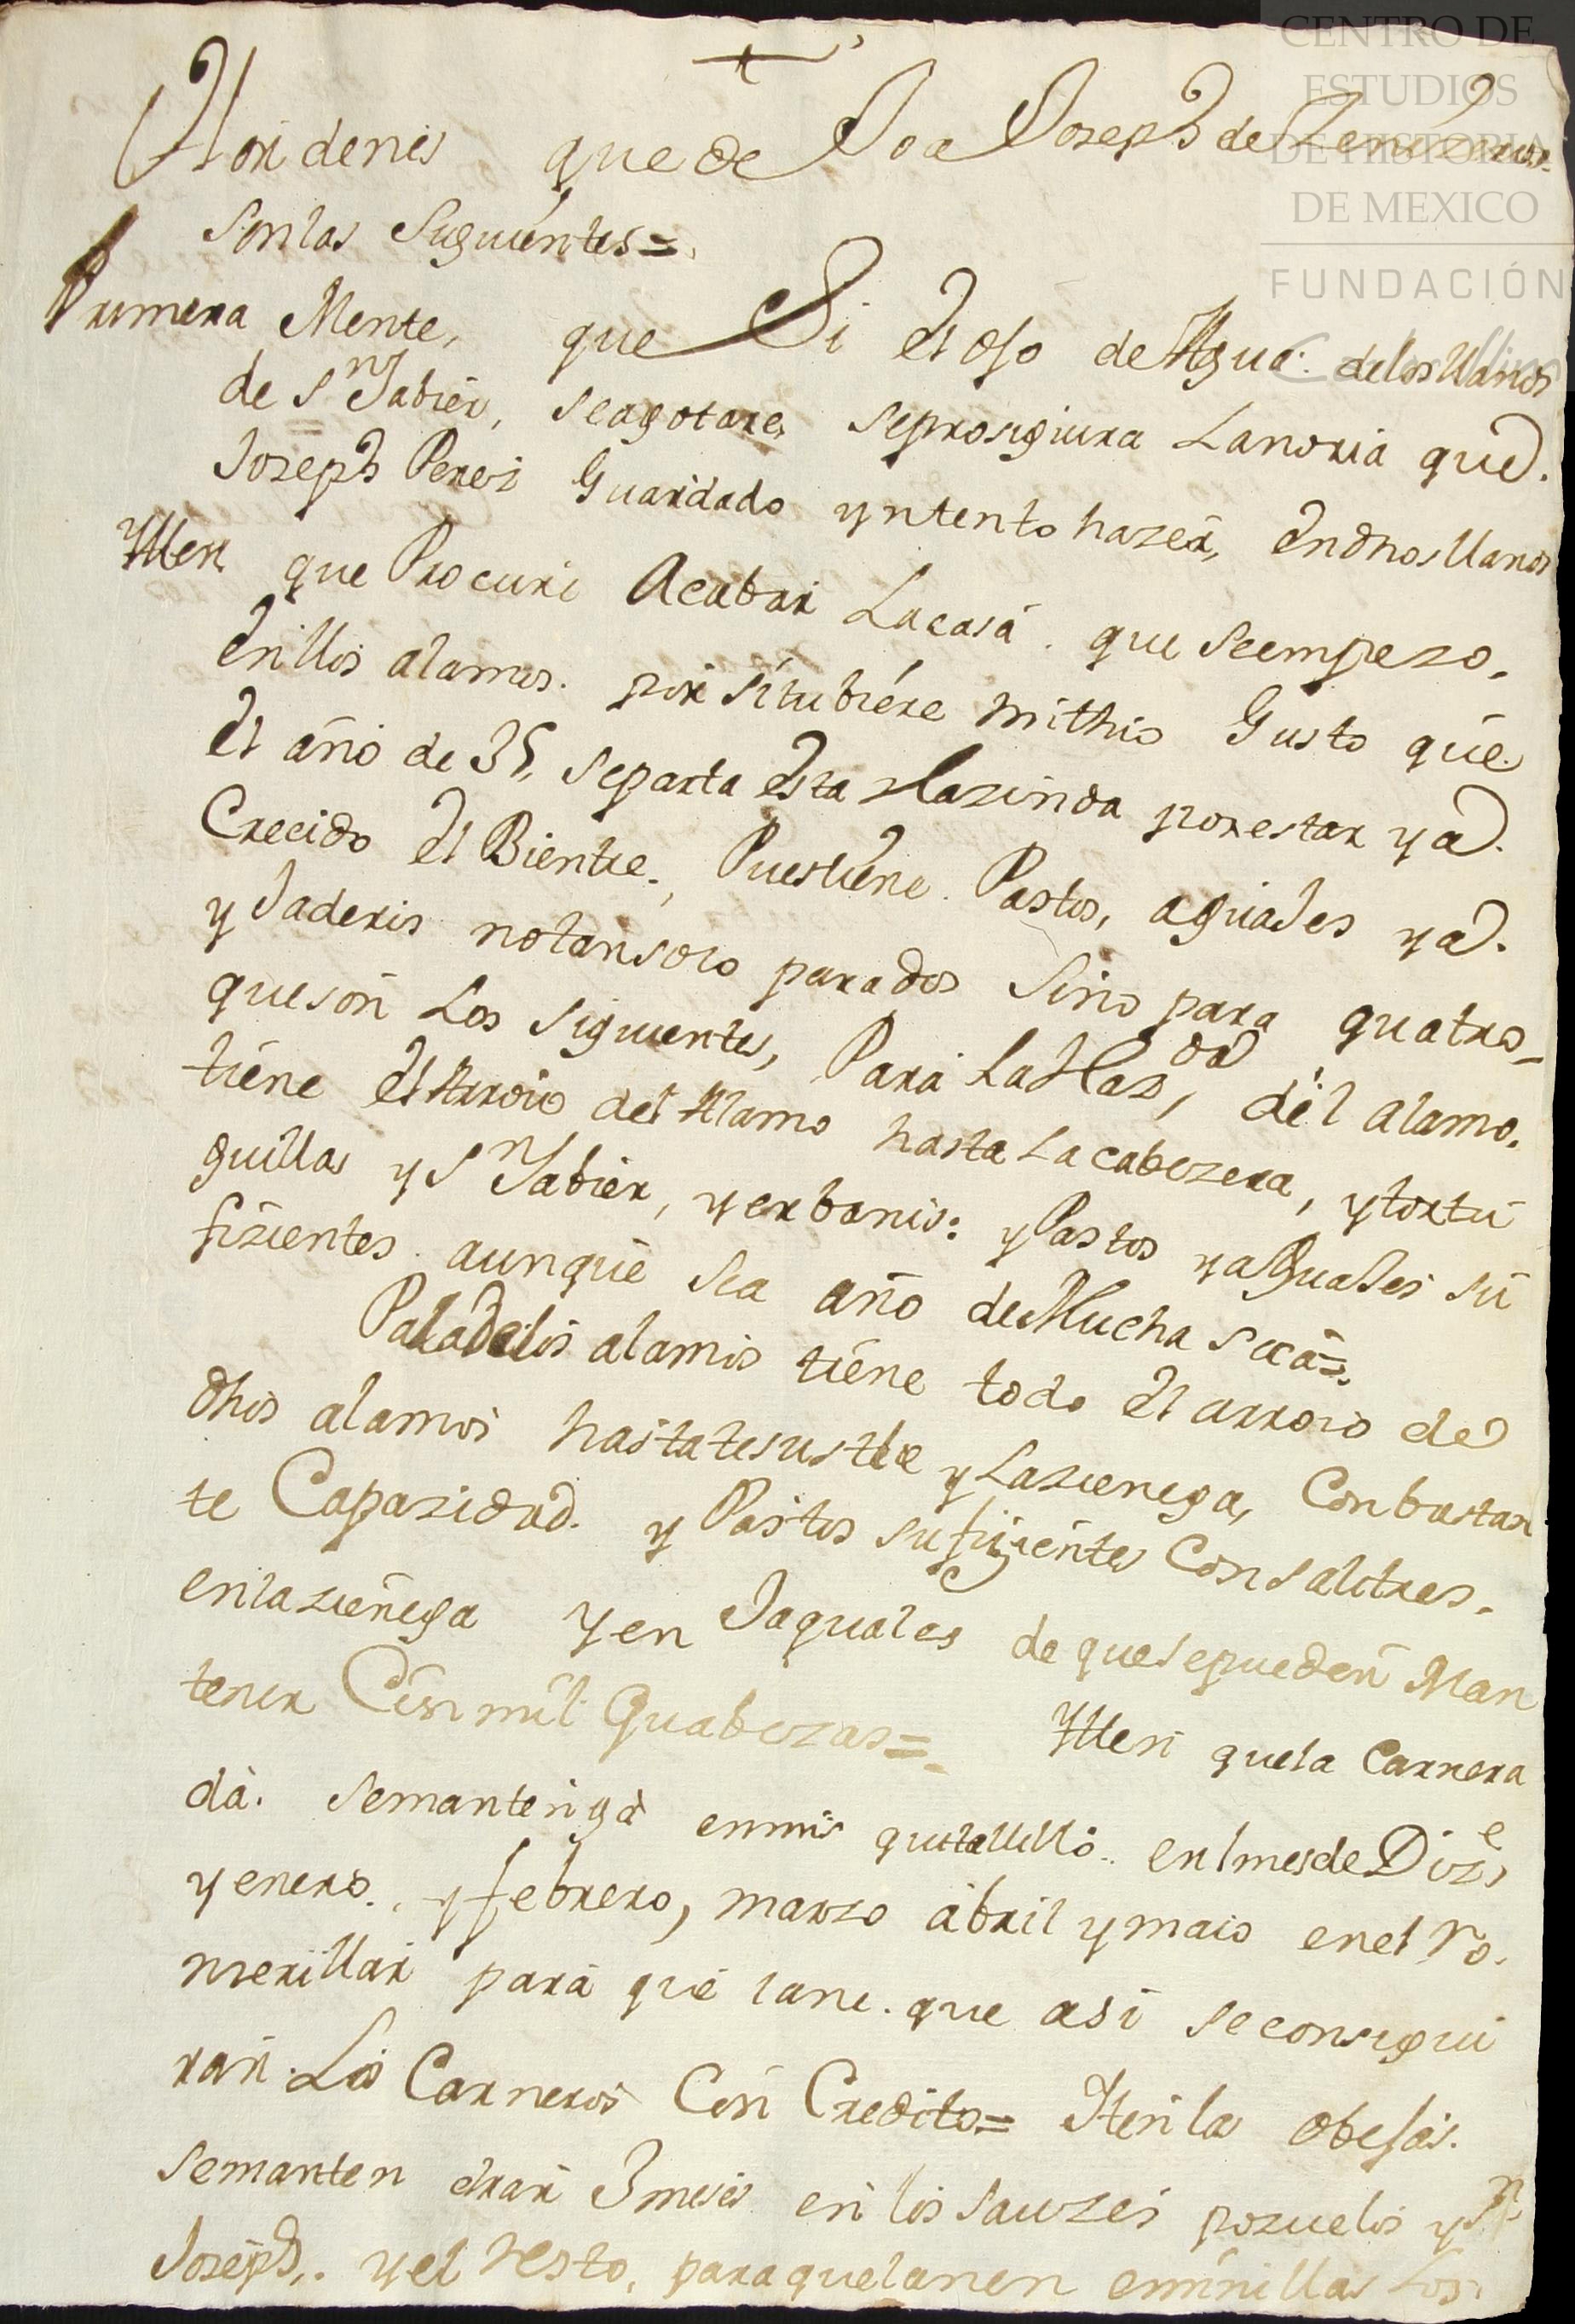 CENTRO DE
ESTUDIOS
DE HISTORIA
DE MEXICO
FUNDACIÓN
Hordenes que de Joseph de
son las Siguientes =
Primera Mente, que Si El oJo de Agua. de los llanos
de Sn Jabier, se agotare, se prosiguira La noria que
Joseph Perez Guardado yntento hazer, En dhos llanos
Ytten que Procure Acabar La casa. que se empezo,
En llos alamos. por si tubiere mi thio Gusto que
El año de 35, se parta Esta Hazinda por estar ya
Crecido El Bientre., Pues tiene. Pastos, aguaJes ya
y Jaderes no tan solo para dos Sino para quatro
que son Los siguientes, Para La Hazda, del alamo,
tiene El Arroio del Alamo hasta La cabezera, y tortu
guillas y Sn Jabier, yerbanis: y Pastos y aGuaJes su
fizientes. aunque sea año de Mucha seca =
Pa la de los alamos tiene todo El arroio de
dhos alamos hasta y La zienega, Con bastan
te Capazidad. y Pastos sufizientes Con salitres.
en la zienega Y en Jaguales de que se pueden Man
tener Cien mil Quabezas = Ytten que la Carnera
da. se mantenga en en l mes de Dize,
y enero. y febrero, marzo abril y maio en el Ro.
merillar para que lane. que asi se consegui
ran. Los Carneros Con Credito = Yten las obeJas.
se manten dran 3 meses en los sauzes pozuelos y Sn
Joseph,. y el resto, para que lanen Los